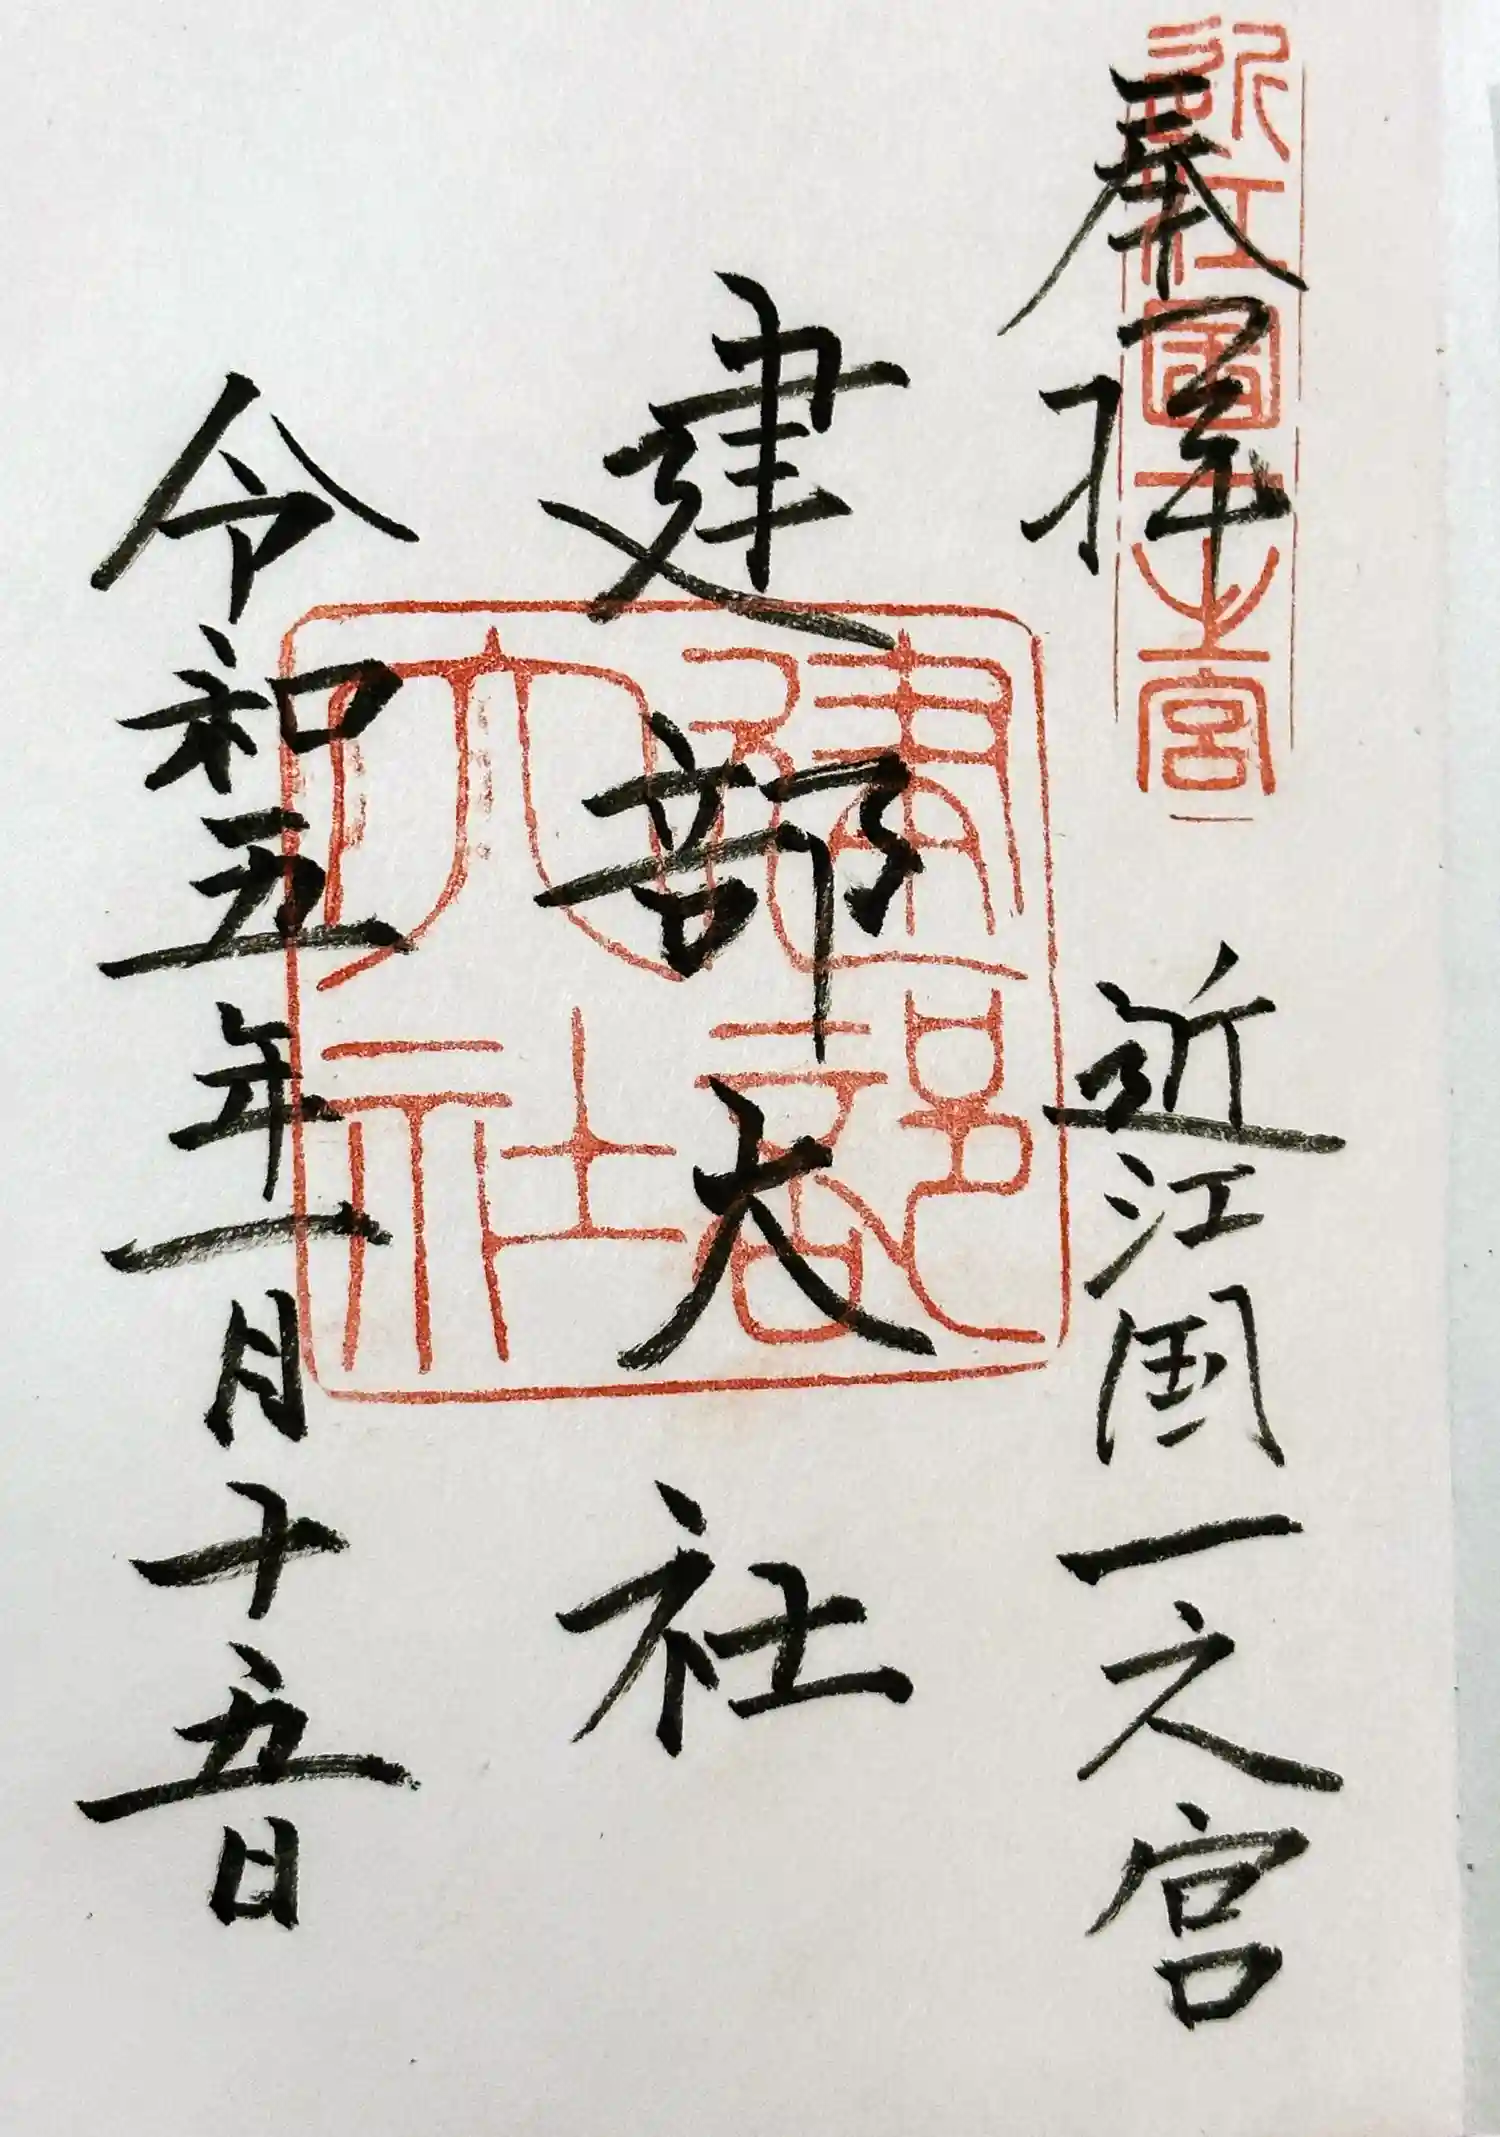 奉拝
近江国一之宮
建部大社
令和五年一月十五日
近江國一之宮
建部大社